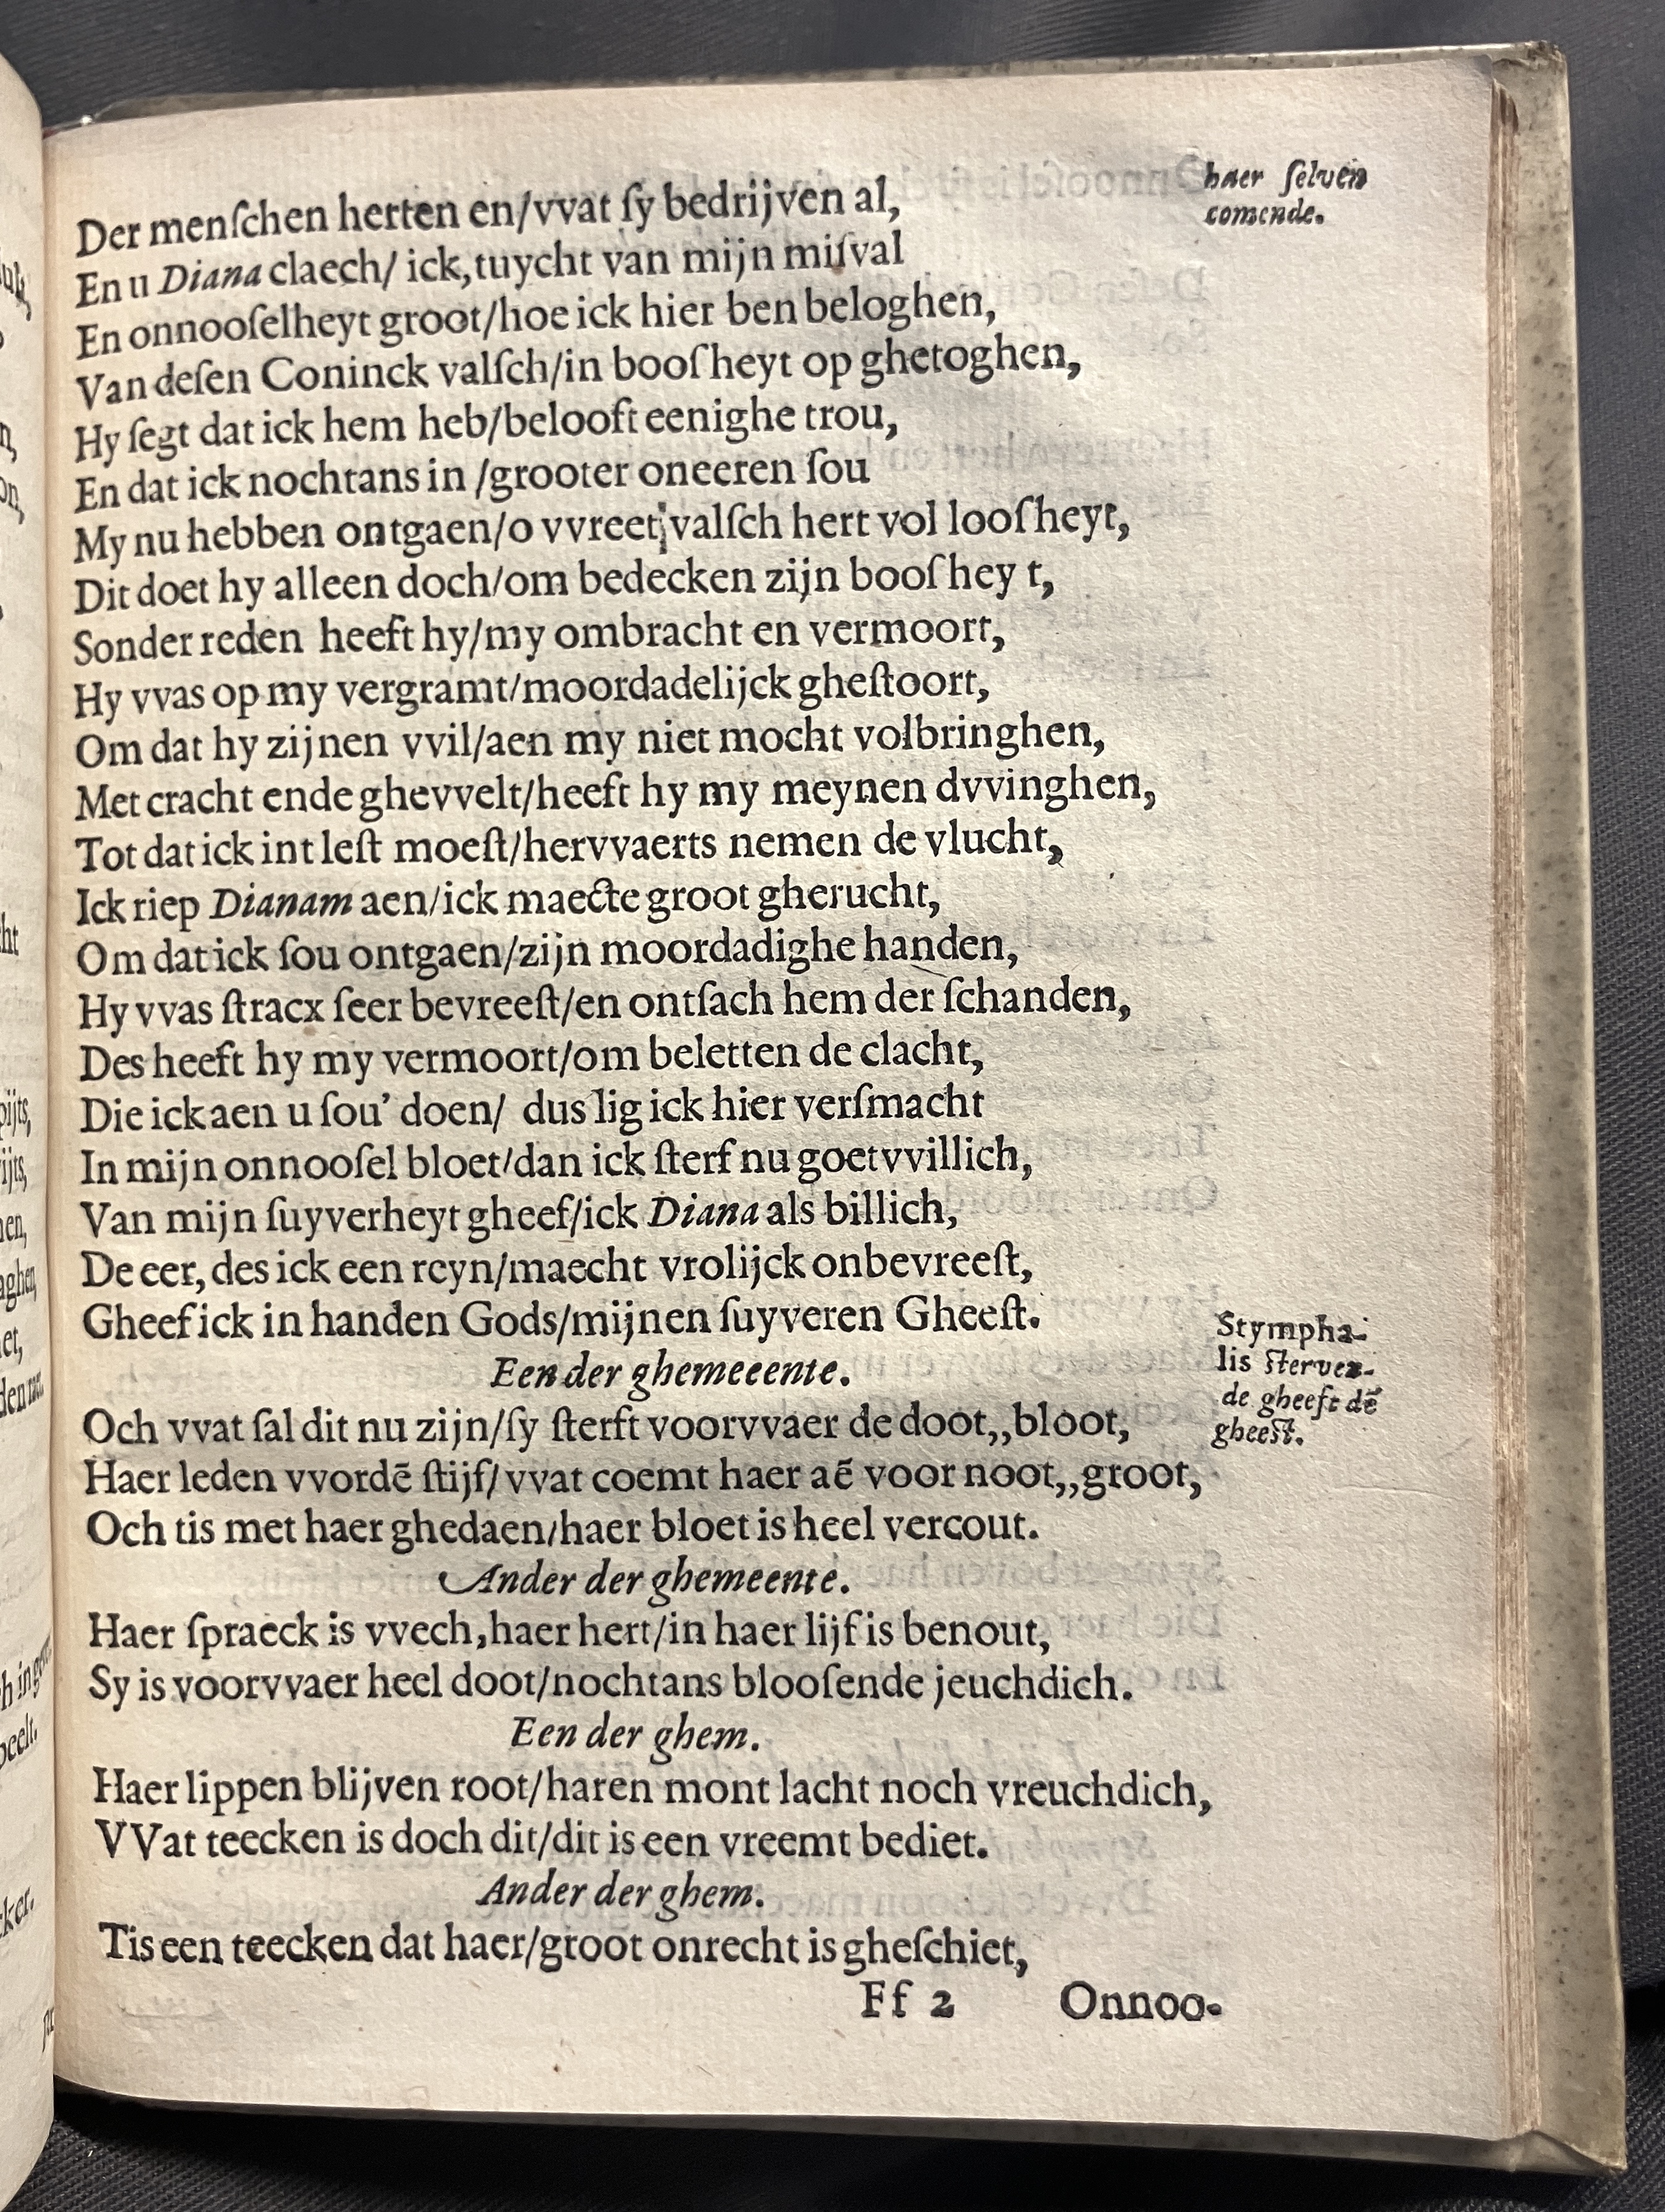 haer ſelven
comende.
Der menſchen herten en/vvat ſy bedrijven al,
En u Diana claech/ ick,tuycht van mijn miſval
En onnooſelheyt groot/hoe ick hier ben beloghen,
Van deſen Coninck valſch/in booſheyt op ghetoghen,
Hy ſegt dat ick hem heb/belooft eenighe trou,
En dat ick nochtans in /grooter oneeren ſou
My nu hebben ontgaen/o vvreet valſch hert vol looſheyt,
Dit doet hy alleen doch/om bedecken zijn booſhey t,
Sonder reden heeft hy/my ombracht en vermoort,
Hy vvas op my vergramt/moordadelijck gheſtoort,
Om dat hy zijnen vvil/aen my niet mocht volbringhen,
Met cracht ende ghevvelt/heeft hy my meynen dvvinghen,
Tot dat ick int leſt moeſt/hervvaerts nemen de vlucht,
Ick riep Dianam aen/ick maecte groot gherucht,
Om dat ick ſou ontgaen/zijn moordadighe handen,
Hy vvas ſtracx ſeer bevreeſt/en ontſach hem der ſchanden,
Des heeft hy my vermoort/om beletten de clacht,
Die ick aen u ſou' doen/ dus lig ick hier verſmacht
In mijn onnooſel bloet/dan ick ſterf nu goetvvillich,
Van mijn ſuyverheyt gheef/ick Diana als billich,
De eer, des ick een reyn/maecht vrolijck onbevreeſt,
Gheef ick in handen Gods/mijnen ſuyveren Gheeſt.
Stympha-
lis ſterven-
de gheeft dē
gheeſt.
Een der ghemeeente.
Och vvat ſal dit nu zijn/ſy ſterft voorvvaer de doot,,bloot,
Haer leden vvordē ſtijf/ vvat coemt haer aē voor noot,,groot,
Och tis met haer ghedaen/haer bloet is heel vercout.
Ander der ghemeente.
Haer ſpraeck is vvech,haer hert/in haer lijf is benout,
Sy is voorvvaer heel doot/nochtans blooſende jeuchdich.
Een der ghem.
Haer lippen blijven root/haren mont lacht noch vreuchdich,
VVat teecken is doch dit/dit is een vreemt bediet.
Ander der ghem.
Tis een teecken dat haer/groot onrecht is gheſchiet,
Ff 2 Onnoo-